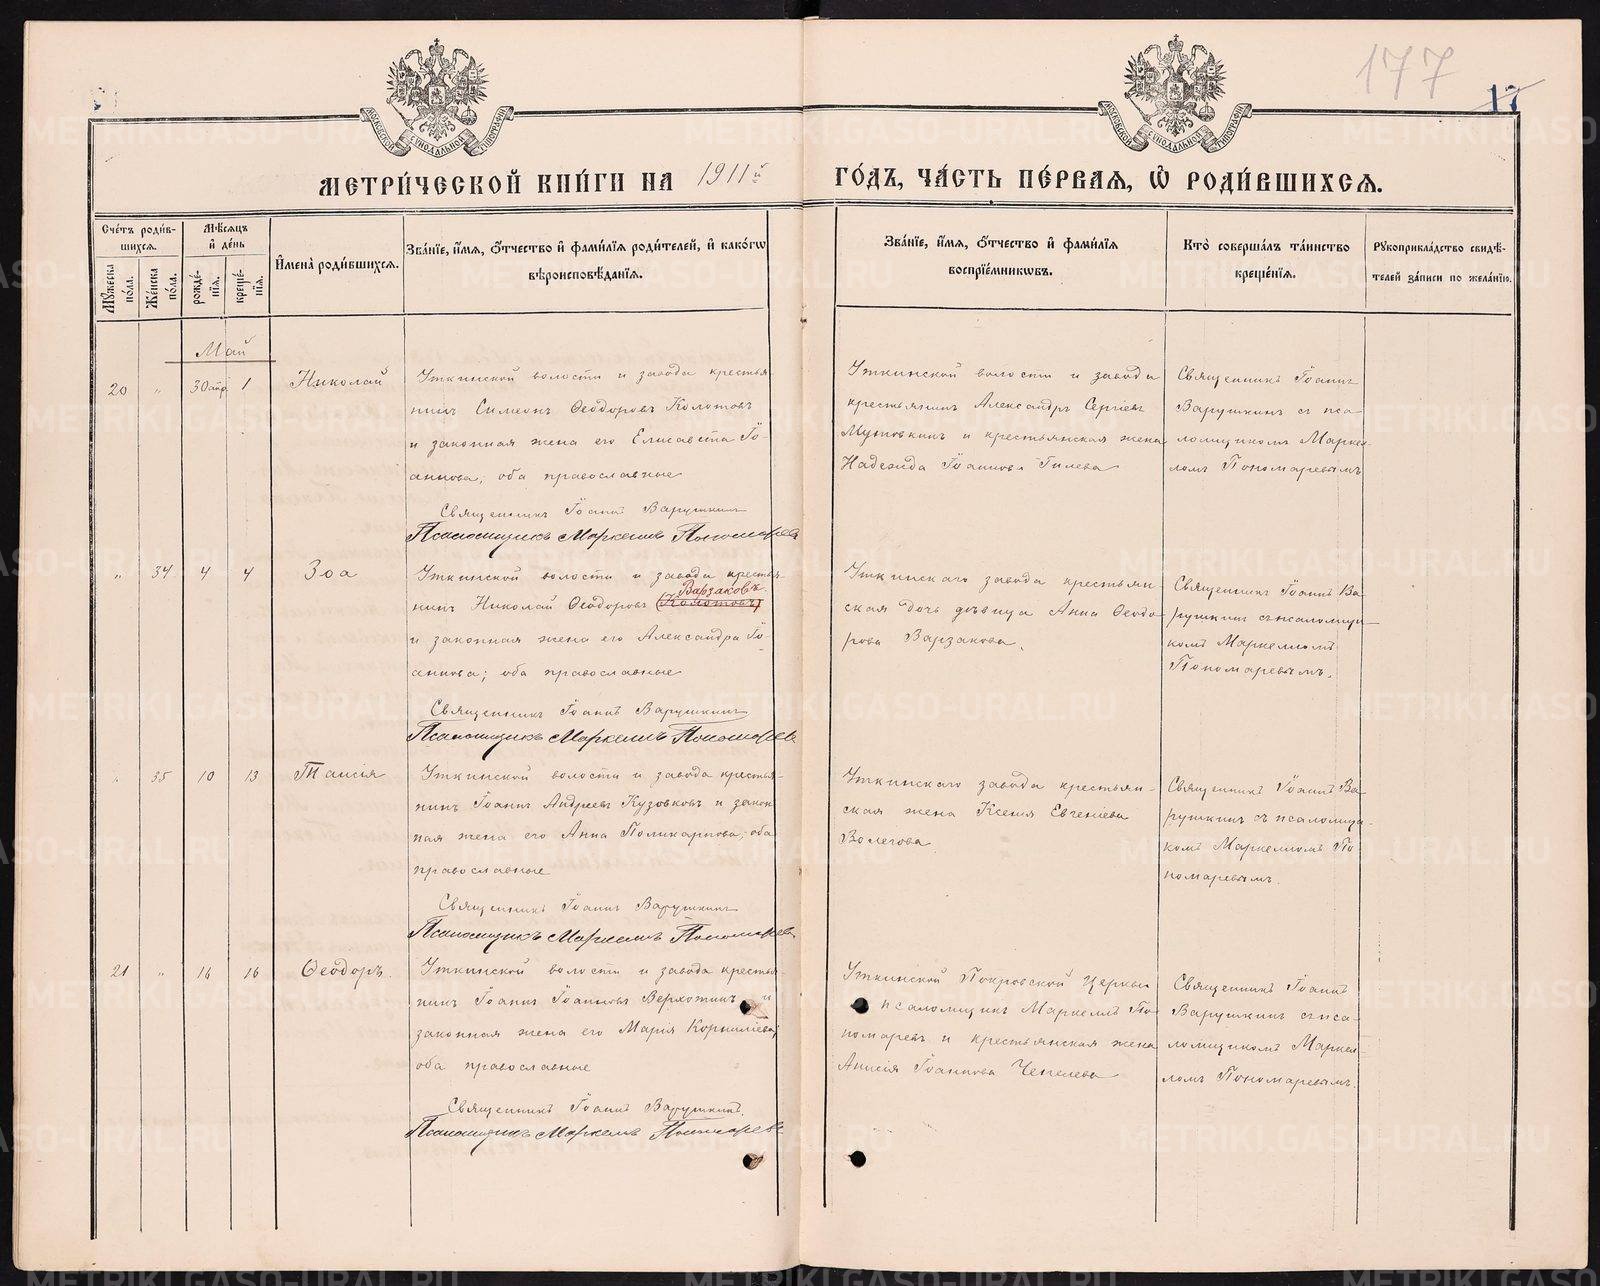 177
17
МОСКОВСКОЙ СѴНОДАЛЬНОЙ ТИПОГРАФІИ
МОСКОВСКОЙ СѴНОДАЛЬНОЙ ТИПОГРАФІИ
МЕТРИ́ЧЕСКОЙ КНИ́ГИ НА 1911й
ГО́ДЪ, ЧА́СТЬ ПЕ́РВАЯ, Ѡ РОДИ́ВШИХСЯ.
Сче́тъ роди́в-
шихся.
Мꙋжеска по́ла.
Же́нска по́ла.
Мѣ́сяцъ
и҆ де́нь
рожде́-
нїя.
креще́-
нїя.
И҆мена̀ роди́вшихся.
Зва́нїе, и҆́мя, ѻ҆́тчество и҆ фами́лїя роди́телей, и҆ како́гѡ
вѣроисповѣ́данїя.
Зва́нїе, и҆́мя, ѻ҆́тчество и҆ фами́лїя
воспрїе́мникѡвъ.
Кто̀ соверша́лъ та́инство
креще́нїя.
Рꙋкоприкла́дство свидѣ́-
телей за́писи по жела́нїю.
Май
20 „ 30 апр 1 Николай
Уткинской волости и завода крестья-
нинъ Симеонъ Ѳеодоровъ Колотовъ
и законная жена его Елисавета Іо-
аннова; оба православные
Священникъ Іоаннъ Варушкинъ
Псаломщикъ Маркеллъ Пономаревъ
Уткинской волости и завода
крестьянинъ Александръ Сергіевъ
Мутовкинъ и крестьянская жена
Надежда Іоаннова Гилева
Священникъ Іоаннъ
Варушкинъ съ пса-
ломщикомъ Маркел-
ломъ Пономаревымъ
„ 34 4 4 Зоа
Уткинской волости и завода крестья-
Варзаковъ
нинъ Николай Ѳеодоровъ (Колотовъ)
и законная жена его Александра Іо-
аннова; оба православные
Священникъ Іоаннъ Варушкинъ
Псаломщикъ Маркеллъ Пономаревъ
Уткинскаго завода крестьян-
ская дочь дѣвица Анна Ѳеодо-
рова Варзакова.
Священникъ Іоаннъ Ва-
рушкинъ съ псаломщи-
комъ Маркелломъ
Пономаревымъ.
„ 35 10 13 Таисія
Уткинской волости и завода крестья-
нинъ Іоаннъ Андреевъ Кузовковъ и закон-
ная жена его Анна Поликарпова; оба
православные
Священникъ Іоаннъ Варушкинъ
Псаломщикъ Маркеллъ Пономаревъ
Уткинскаго завода крестьян-
ская жена Ксенія Евгеніева
Волегова
Священникъ Іоаннъ Ва-
рушкинъ съ псаломщи-
комъ Маркелломъ По-
номаревымъ.
21 „ 16 16 Ѳеодоръ.
Уткинской волости и завода крестья-
нинъ Іоаннъ Іоанновъ Верхотинъ и
законная жена его Марія Корниліева;
оба православные
Священникъ Іоаннъ Варушкинъ.
Псаломщикъ Маркеллъ Пономаревъ
Уткинской Покровской Церкви
псаломщикъ Маркеллъ По-
номаревъ и крестьянская жена
Анисія Іоаннова Чепелева
Священникъ Іоаннъ
Варушкинъ съ пса-
ломщикомъ Маркел-
ломъ Пономаревымъ.
METRIKI.GASO-URAL.RU